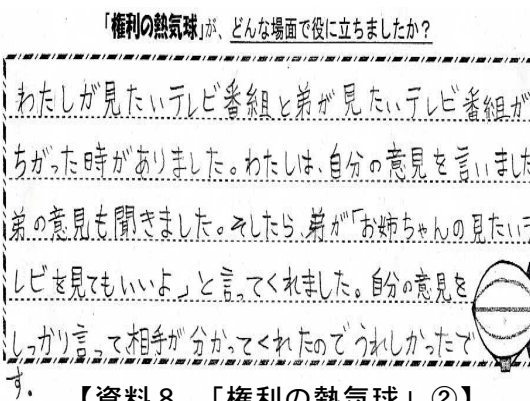 「権利の熱気球」が、どんな場面で役に立ちましたか？
わたしが見たいテレビ番組と弟が見たいテレビ番組が
ちがった時がありました。わたしは、自分の意見を言いました
弟の意見も聞きました。そしたら、弟が「お姉ちゃんの見たいテ
レビを見てもいいよ」と言ってくれました。自分の意見を
しっかり言って相手が分かってくれたのでうれしかったで
す。
【資料８　「権利の熱気球」②】